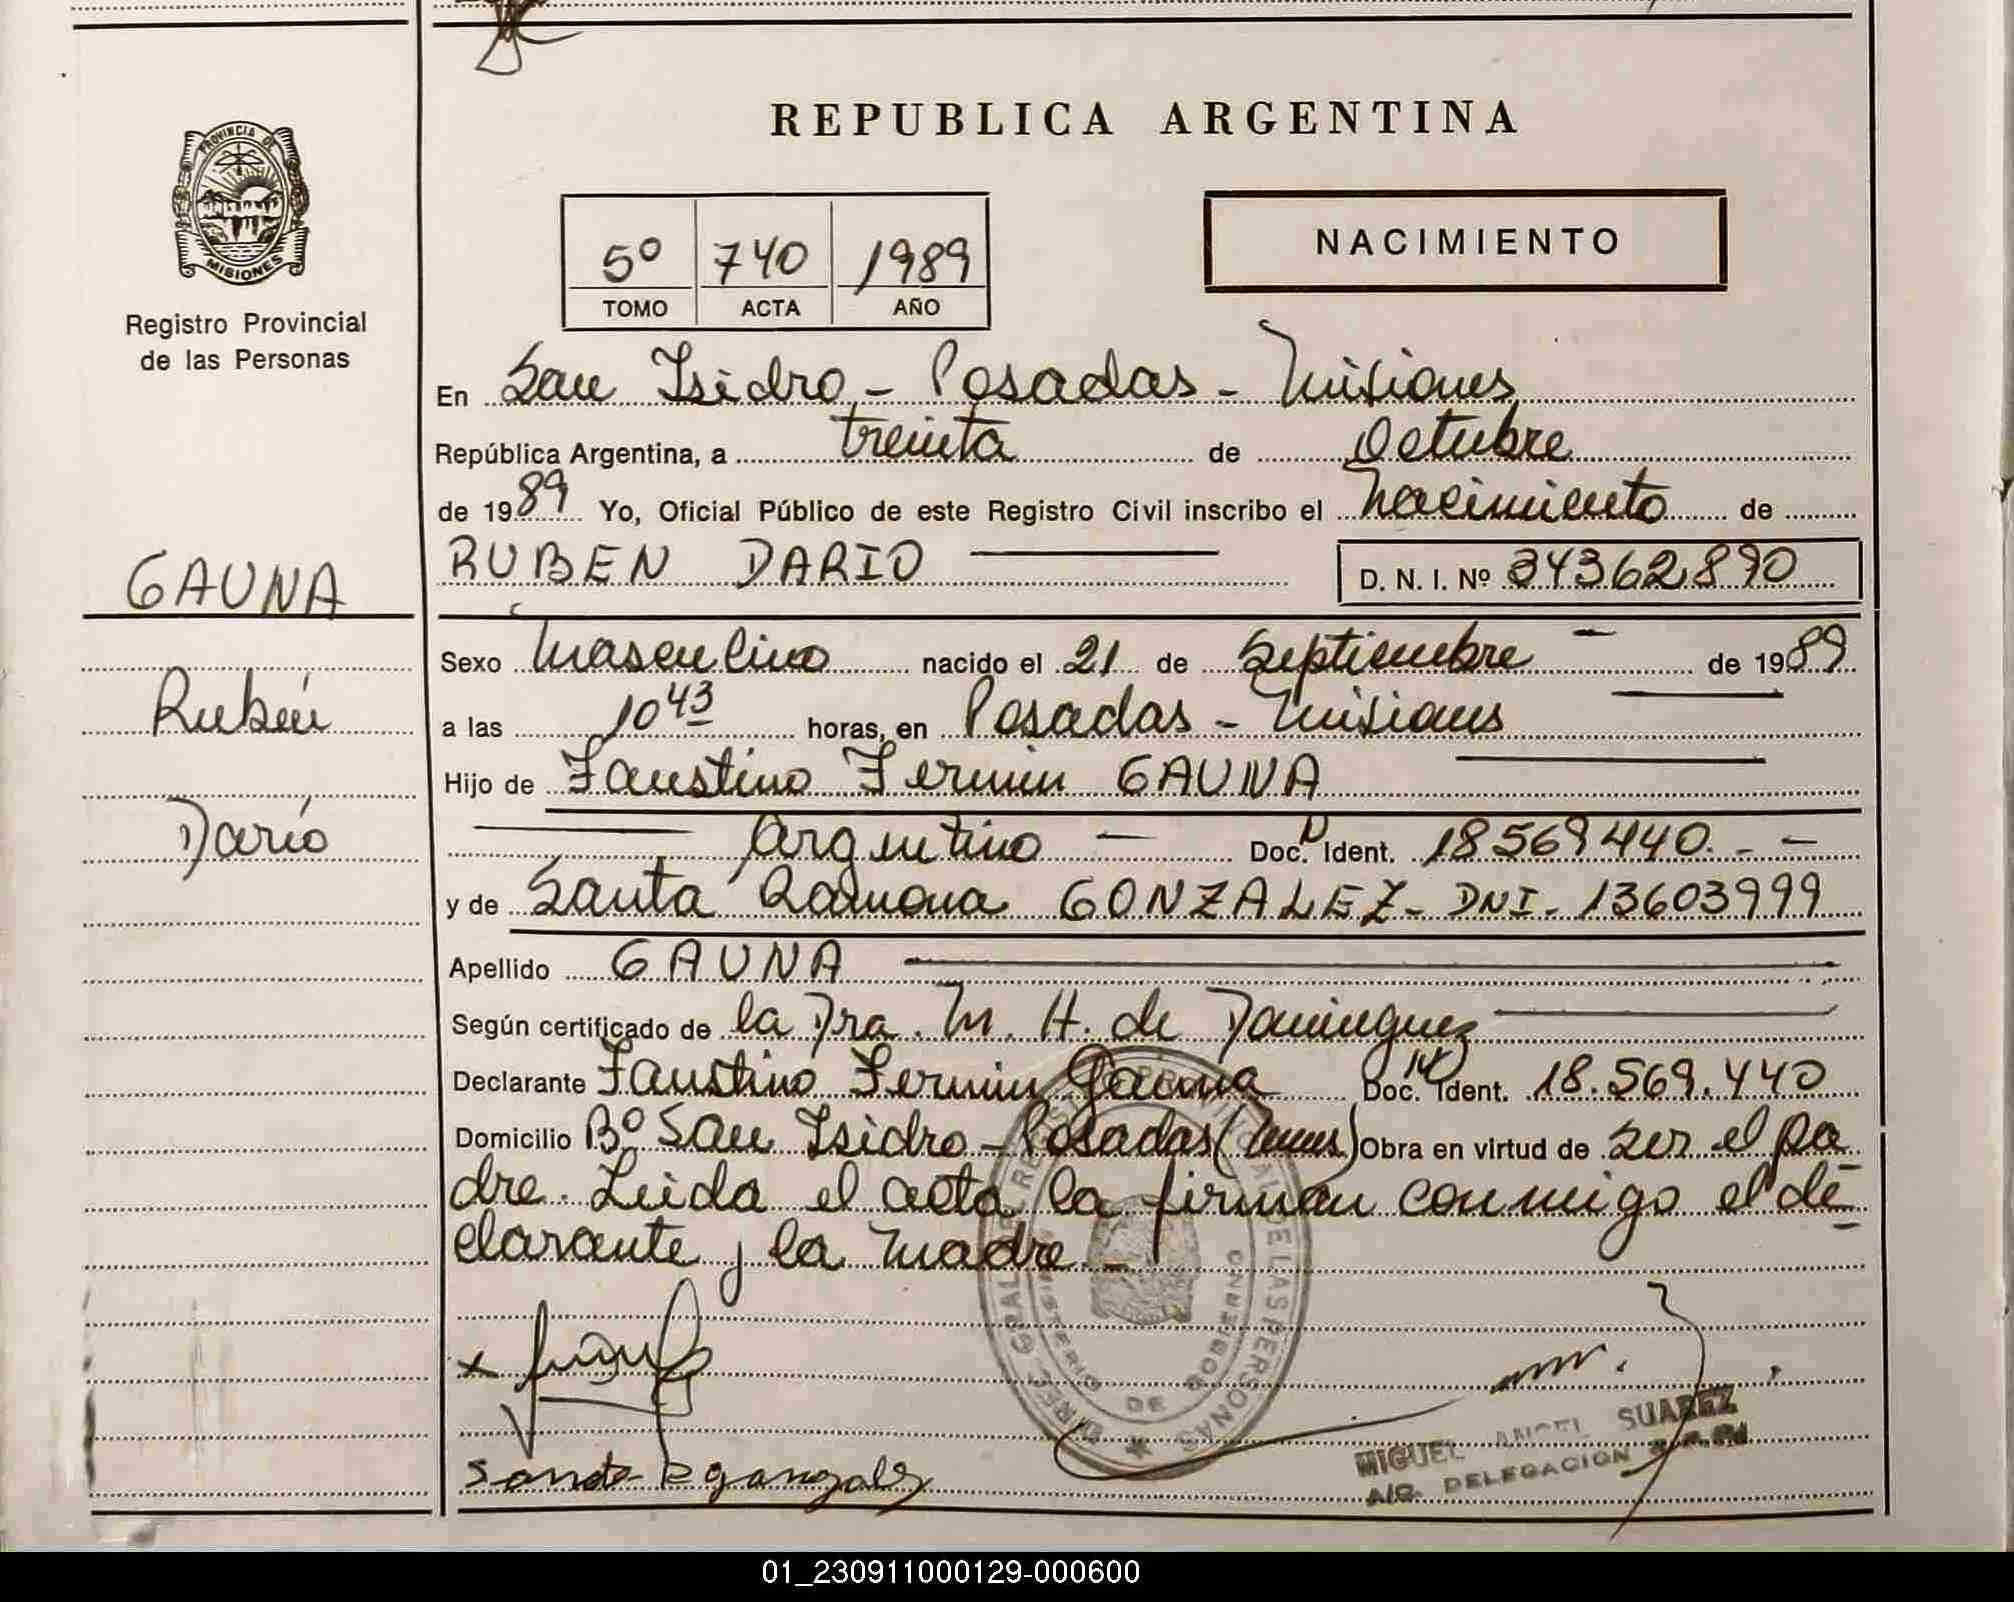 REPUBLICA ARGENTINA
PROVINCIA DE MISIONES
Registro Provincial
de las Personas
5º 740 1989
TOMO ACTA AÑO
NACIMIENTO
En San Isidro - Posadas - Misiones
República Argentina, a treinta de Octubre
de 1989 Yo, Oficial Público de este Registro Civil inscribo el Nacimiento de
RUBEN DARIO D. N. I. Nº 34362890
GAUNA
Rubén
Darío
Sexo Masculino nacido el 21 de Septiembre de 1989
a las 10 43 horas, en Posadas - Misiones
Hijo de Faustino Fermin GAUNA
Argentino Doc. Ident. 18569440. -
y de Santa Ramona GONZALEZ - DNI - 13603999
Apellido GAUNA
Según certificado de la Dra. M. H. de Dominguez
Declarante Faustino Fermin Gauna Doc. Ident. 18.569.440
Domicilio Bº San Isidro - Posadas (Mnes) Obra en virtud de ser el pa
dre. Leida el acta la firman conmigo el de
clarante y la madre. -
DIREC. GRAL. REGISTRO PROVINCIAL DE LAS PERSONAS
MINISTERIO DE GOBIERNO
MIGUEL ANGEL SUAREZ
A/C. DELEGACION
01_230911000129-000600